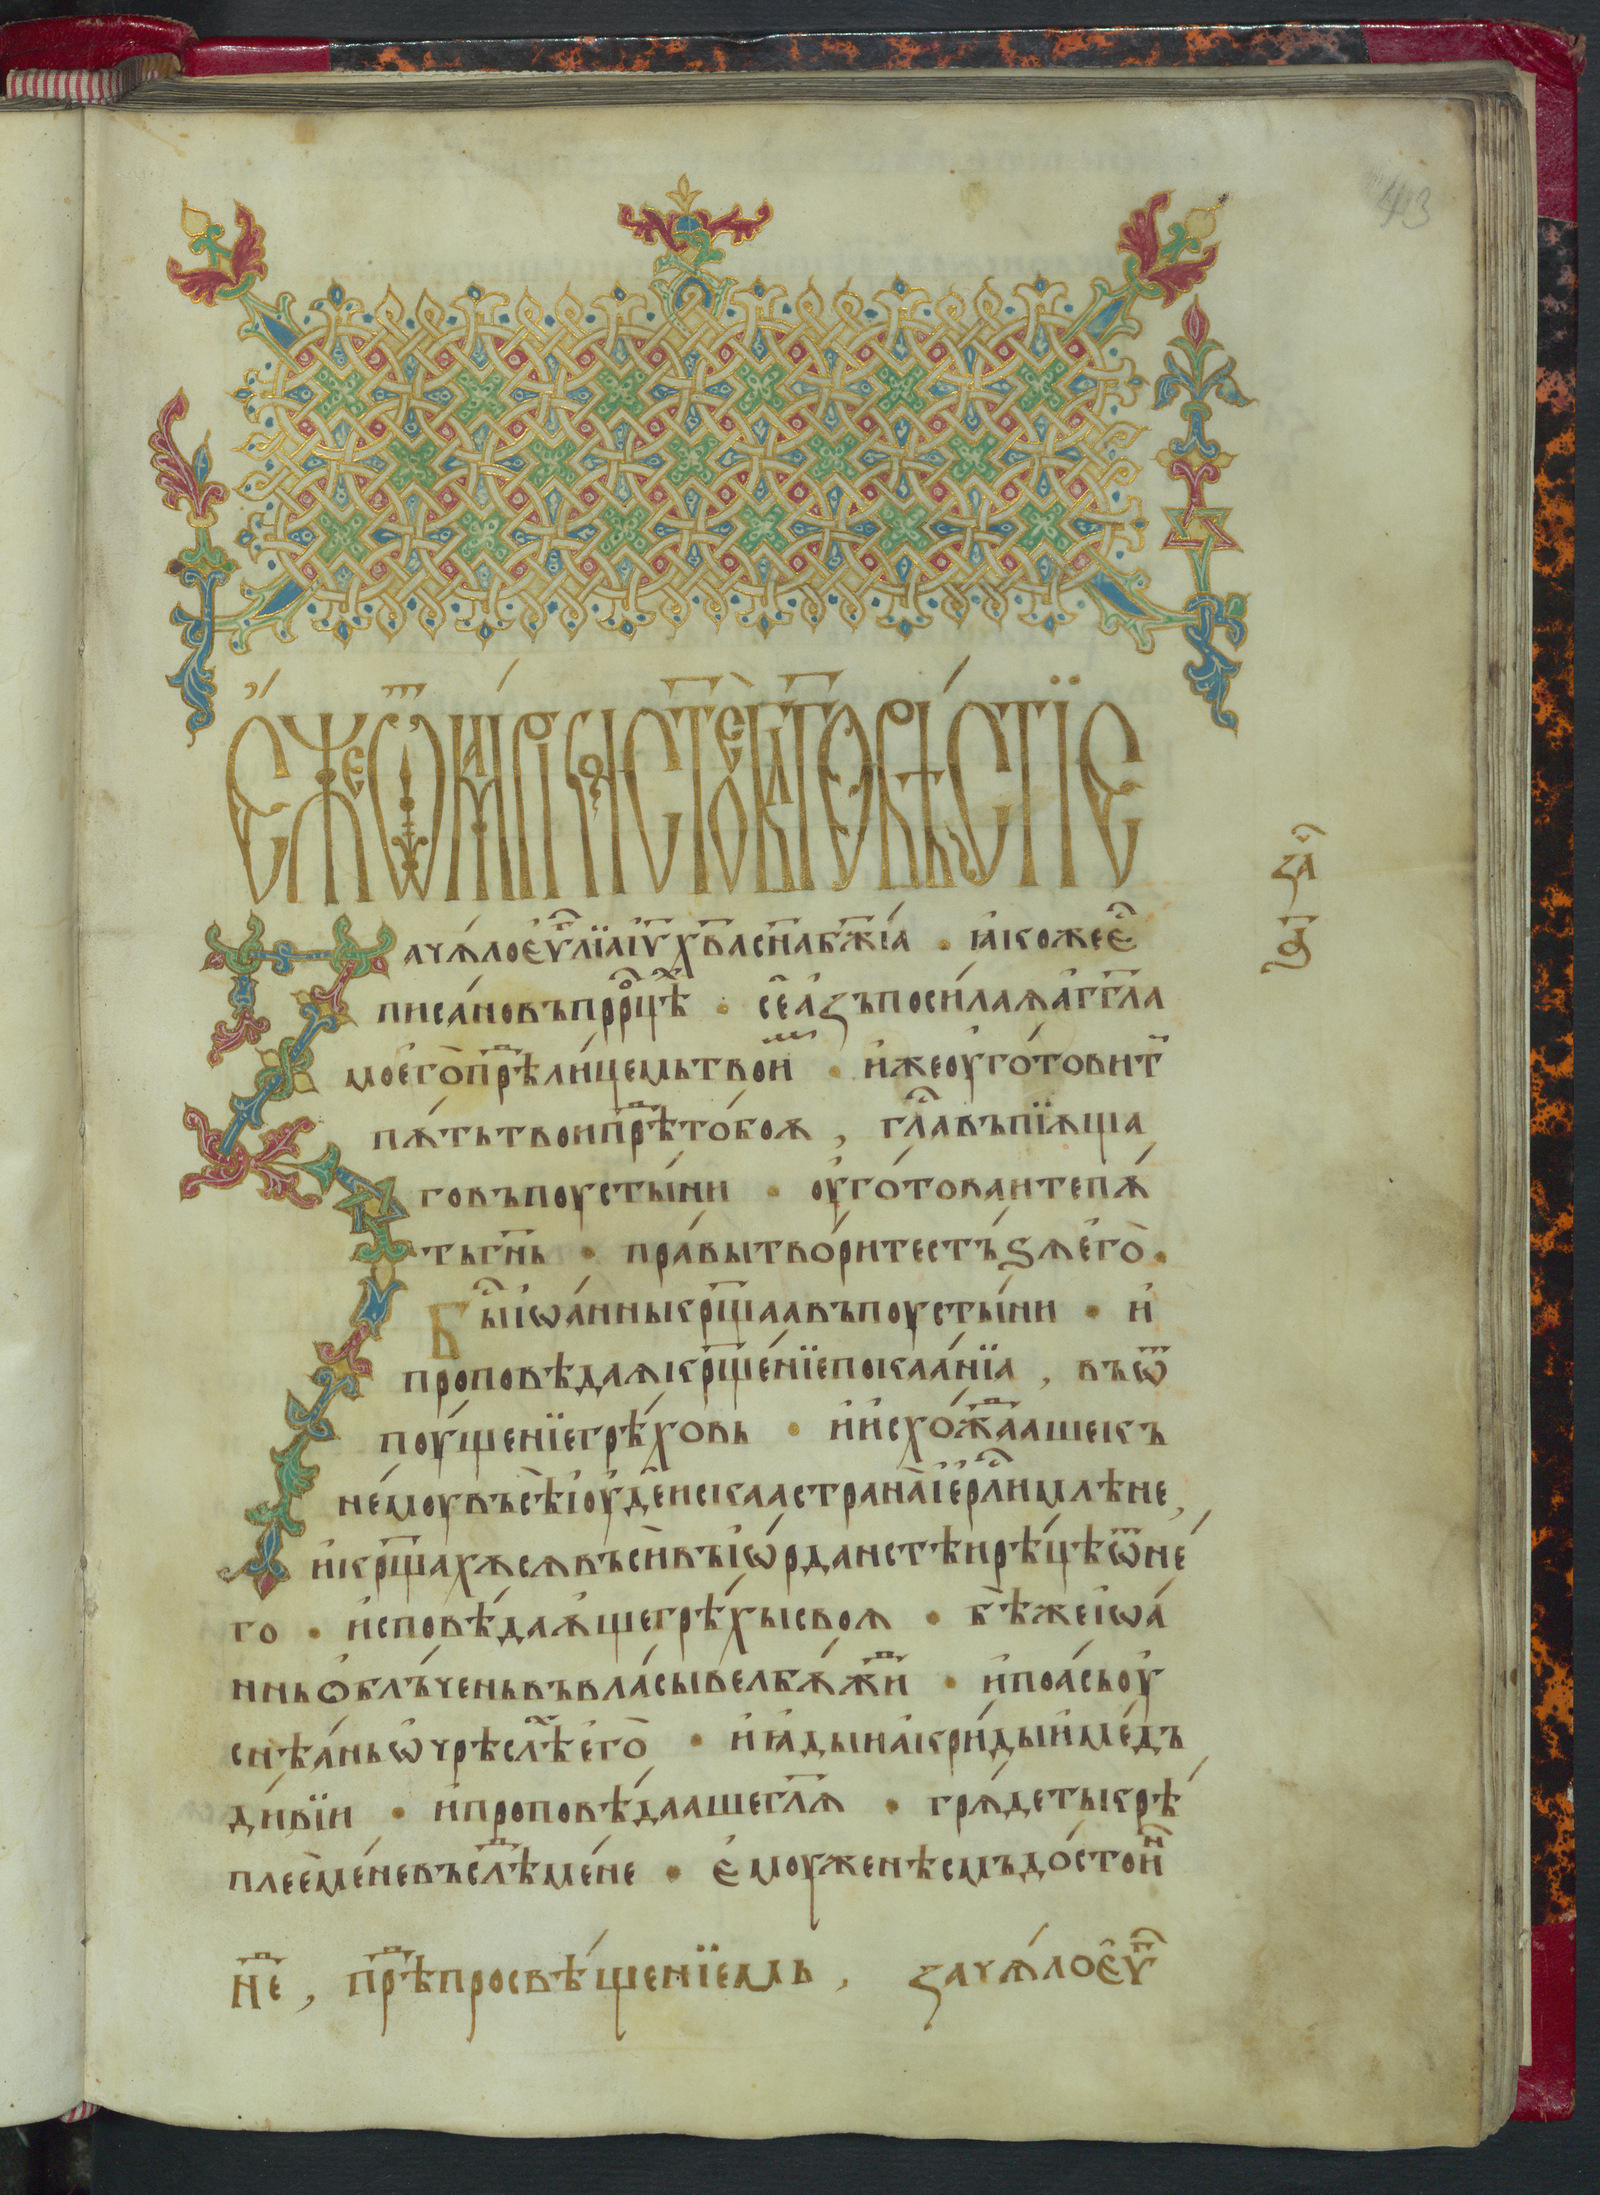 43
Е҆́же ѿ ма́рка ст҃ое бл҃говѣ́стїе
за҇
а҃
Зачѧ́ло е҆ѵ҃лїа і҆ѵ҃ х҃ва сн҃а бж҃їа · ꙗ҆коже е҆с҇
писа́но въ прⷪ҇рцѣ҇хь · се҇ а҆́зъ посила́ѫ а҆́гг҃ла
моего̀ прѣⷣ ли́цемь твои́мь · и҆́же оу҆гото́витⸯ
пѫть твои прѣⷣ тобо́ѫ , гла҇ въпїѫща
го въ поусты́ни · оу҆гото́ваите пѫ́
ть гн҃ь · пра́вы твори́те стъѕѫ е҆го̀ .
Бы҇ і҆ѡа́ннь кр҃щаа въ поусты́ни · и҆
проповѣ́даѫ кр҃ще́нїе покаа́нїа , въ ѿ
поу́щенїе грѣхо́вь · и҆ и҆схожⷣа́аше къ
не́моу въсѣ̀ і҆оуде́искаа страна̀ і҆ерⷭ҇лимлѣне ,
и҆ кр҃щахѫ сѧ въсѝ въ і҆ѡ́рданстѣи рѣ́цѣ ѿ не́
го · и҆сповѣ́даѫще грѣхы́ своѫ · бѣ̀ же і҆ѡа́
ннь ѻ҆блъ́чень въ вла́сы велбѫжⷣи · и҆ по́ась оу
снѣа́нь ѡ҆ чрѣслѣⷯ е҆го̀ · и҆ ꙗ҆ды́и а҆кри́ды и҆ ме́дъ
ди́вїи · и҆ проповѣ́дааше гл҃ѧ · грѧде́ть крѣ́
плеѐ ме́не въслѣⷣ ме́не · е҆моуже нѣсмъ дости́инⸯ
не҃ⷣ , прѣⷣ просвѣще́нїемь , зачѧ́ло е҆ѵ҃